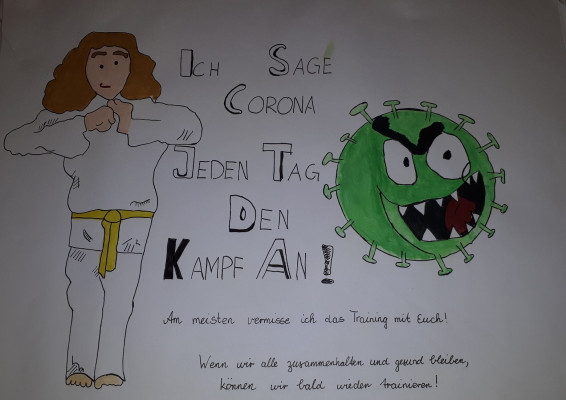 Ich Sage
Corona
Jeden Tag
Den
Kampf An!
Am meisten vermisse ich das Training mit Euch!
Wenn wir alle zusammenhalten und gesund bleiben,
können wir bald wieder trainieren!